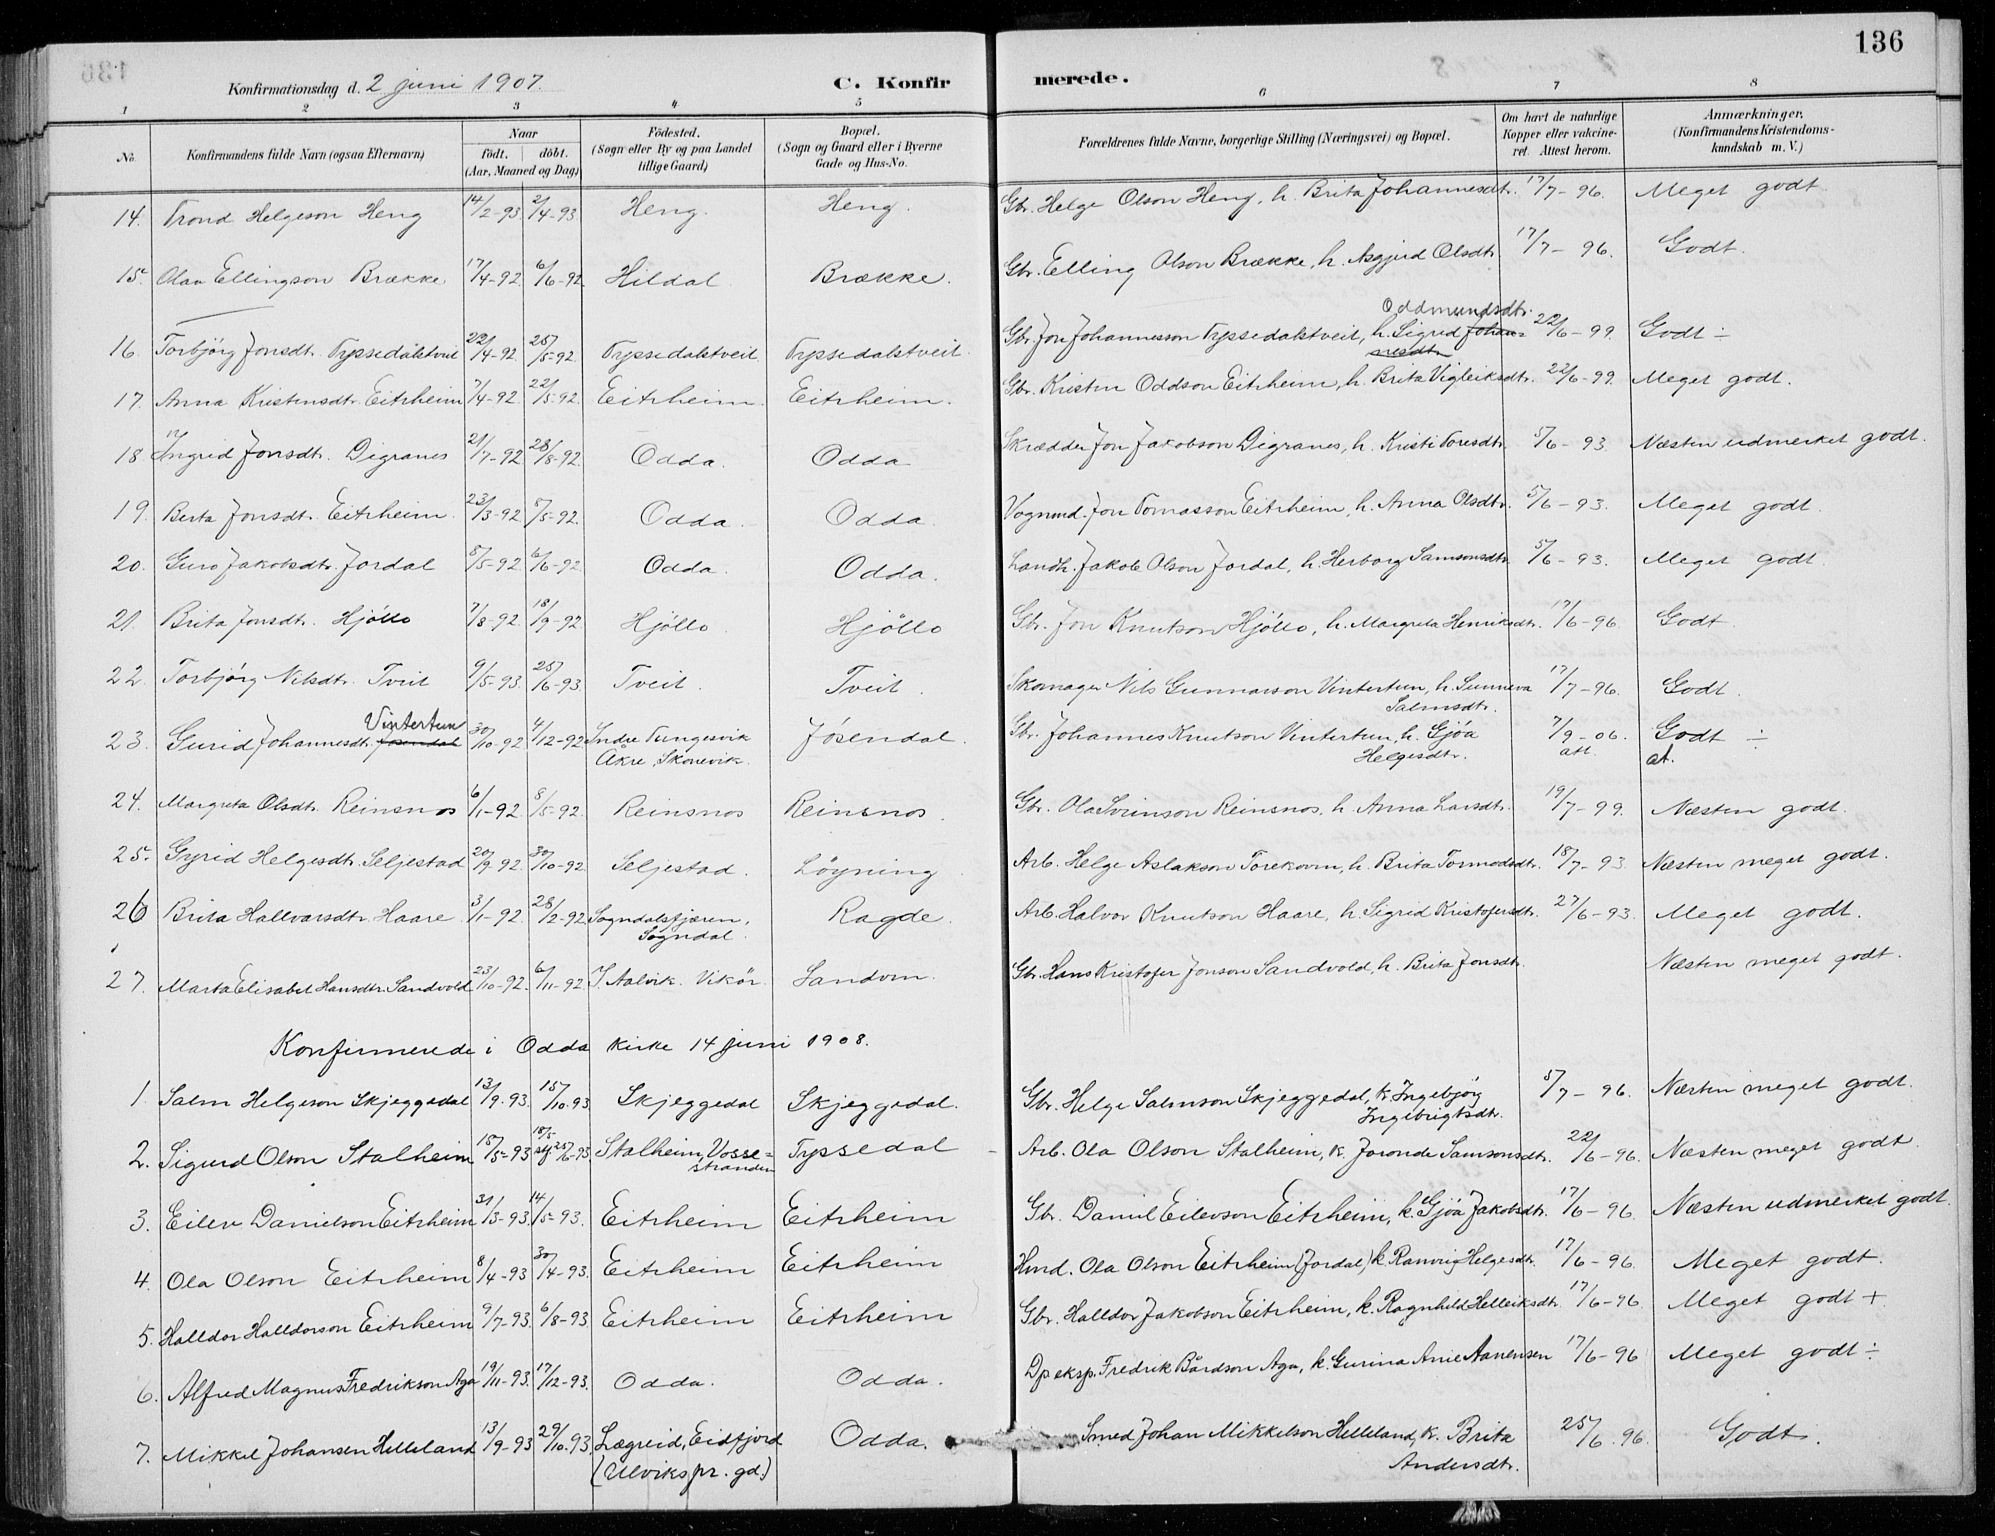 136
Konfirmationsdag d. 2 juni 1907. C. Konfirmerede.
1 2 3 4 5 6 7 8
No. Konfirmandens fulde Navn (ogsaa Efternavn) Naar født. døbt. (Aar, Maaned og Dag) Fødested. (Sogn eller By og paa Landet tillige Gaard) Bopæl. (Sogn og Gaard eller i Byerne Gade og Hus-No. Forældrenes fulde Navne, borgerlige Stilling (Næringsvei) og Bopæl. Om havt de naturlige Kopper eller vakcineret. Attest herom. Anmærkninger, (Konfirmandens Kristendomskundskab m. V.)
14. Trond Helgeson Heng 14/2-93 2/4-93 Heng. Heng. Gbr. Helge Olson Heng, h. Brita Johannesdtr. 17/7-96. Meget godt
15. Olav Ellingson Brække 17/4-92 6/6-92 Hildal Brække. Gbr. Elling Olson Brække, h. Asgjerd Olsdtr. 17/7-96. Godt.
16. Torbjörg Jonsdtr. Tyssedalstveit 22/4-92 25/5-92 Tyssedalstveit Tyssedalstveit. Gbr. Jon Johannesson Tyssedalstveit, h. Sigrid Johannesdtr. Oddmundsdtr. 22/6-99. Godt ÷
17. Anna Kristensdtr. Eitrheim 7/4-92 22/5-92. Eitrheim. Eitrheim. Gbr. Kristen Oddson Eitrheim, h. Brita Vigleiksdtr. 22/6-99. Meget godt.
18. Ingrid Jonsdtr. Digranes 21/7-92 28/8-92. Odda. Odda Skrædder Jon Jakobson Digranes, h. Kristi Toresdtr. 5/6-93. Næsten udmerket godt.
19. Berta Jonsdtr. Eitrheim. 23/3-92 5/5-92. Odda. Odda. Vognmd. Jon Tomasson Eitrheim, h. Anna Olsdtr. 5/6-93. Meget godt.
20. Guro Jakobsdtr. Jordal 5/5-92 6/6-92. Odda. Odda. Landh. Jakob Olson Jordal, h. Herborg Samsonsdtr. 5/6-93. Meget godt
21. Brita Jonsdtr. Hjöllo 7/8-92. 18/9-92. Hjöllo. Hjöllo Gbr. Jon Knutson Hjöllo, h. Margreta Henriksdtr. 17/6-96. Godt
22. Torbjörg Nilsdtr. Tveit 9/5-93. 25/6-93. Tveit. Tveit. Skomager Nils Gunnarson Vintertun, h. Sunneva Salmsdtr. 17/7-96. Godt.
23. Gurid Johannesdtr. Jösendal Vintertun 30/10-92 4/12-92 Indre Tungesvik Åkre, Skonevik. Jösendal. Gbr. Johannes Knutson Vintertun, h. Gjöa Helgesdtr. 7/9-06. att. Godt ÷ at.
24. Margreta Olsdtr. Reinsnos 6/1-92 8/5-92. Reinsnos Reinsnos. Gbr. Ola Sveinson Reinsnos, h. Anna Larsdtr. 19/7-99. Næsten godt.
25. Gyrid Helgesdtr. Seljestad 20/9-92. 30/10-92 Seljestad. Löyning Arb. Helge Aslakson Torekovm, h. Brita Tormodsdtr. 18/7-93 Næsten meget godt.
26 Brita Hallvarsdtr. Haare. 3/1-92. 28/2-92 Sogndalsfjæren, Sogndal. Ragde. Arb. Halvor Knutson Haare, h. Sigrid Kristofersdtr. 27/6-93. Meget godt.
27. Marta Elisabet Hansdtr. Sandvold 23/10-92. 6/11-92 I. Aalvik. Vikör. Sandvin. Gbr. Hans Kristofer Jonson Sandvold, h. Brita Jonsdtr. Næsten meget godt.
Konfirmerede i Odda kirke 14 juni 1908.
1. Salm Helgeson Skjeggedal 13/9-93. 15/10-93. Skjeggedal Skjeggedal. Gbr. Helge Salmson Skjeggedal, k. Ingebjörg Ingebrigtsdtr. 5/7-96. Næsten meget godt.
2. Sigurd Olson Stalheim 15/5-93 18/5 25/6-93 Stalheim, Vossestranden Tyssedal Arb. Ola Olson Stalheim, k. Joronde Samsonsdtr. 22/6-96. Næsten meget godt
3. Eilev Danielson Eitrheim 31/3-93. 14/5-93. Eitrheim Eitrheim Gbr. Daniel Eilevson Eitrheim, k. Gjöa Jakobsdtr. 17/6-96. Næsten udmerket godt
4. Ola Olson Eitrheim 8/4-93 30/4-93. Eitrheim Eitrheim Hmd. Ola Olson Eitrheim (Jordal) k. Ranveig Helgesdtr. 17/6-96. Meget godt.
5. Halldor Halldorson Eitrheim 9/7-93. 6/8-93 Eitrheim Eitrheim Gbr. Halldor Jakobson Eitrheim, k. Ragnhild Helleiksdtr. 17/6-96 Meget godt +
6. Alfred Magnus Fredrikson Aga 19/11-93. 17/12-93. Odda. Odda. Dpeksp. Fredrik Bårdson Aga, k. Gurina Anie Aanensen 17/6-96 Meget godt ÷
7. Mikkel Johansen Helleland 13/9-93 29/10-93. Lægreid, Eidfjord (Ulviks pr. gd.) Odda. Smed Johan Mikkelson Helleland, k. Brita Andersdtr. 25/6-96. Godt.